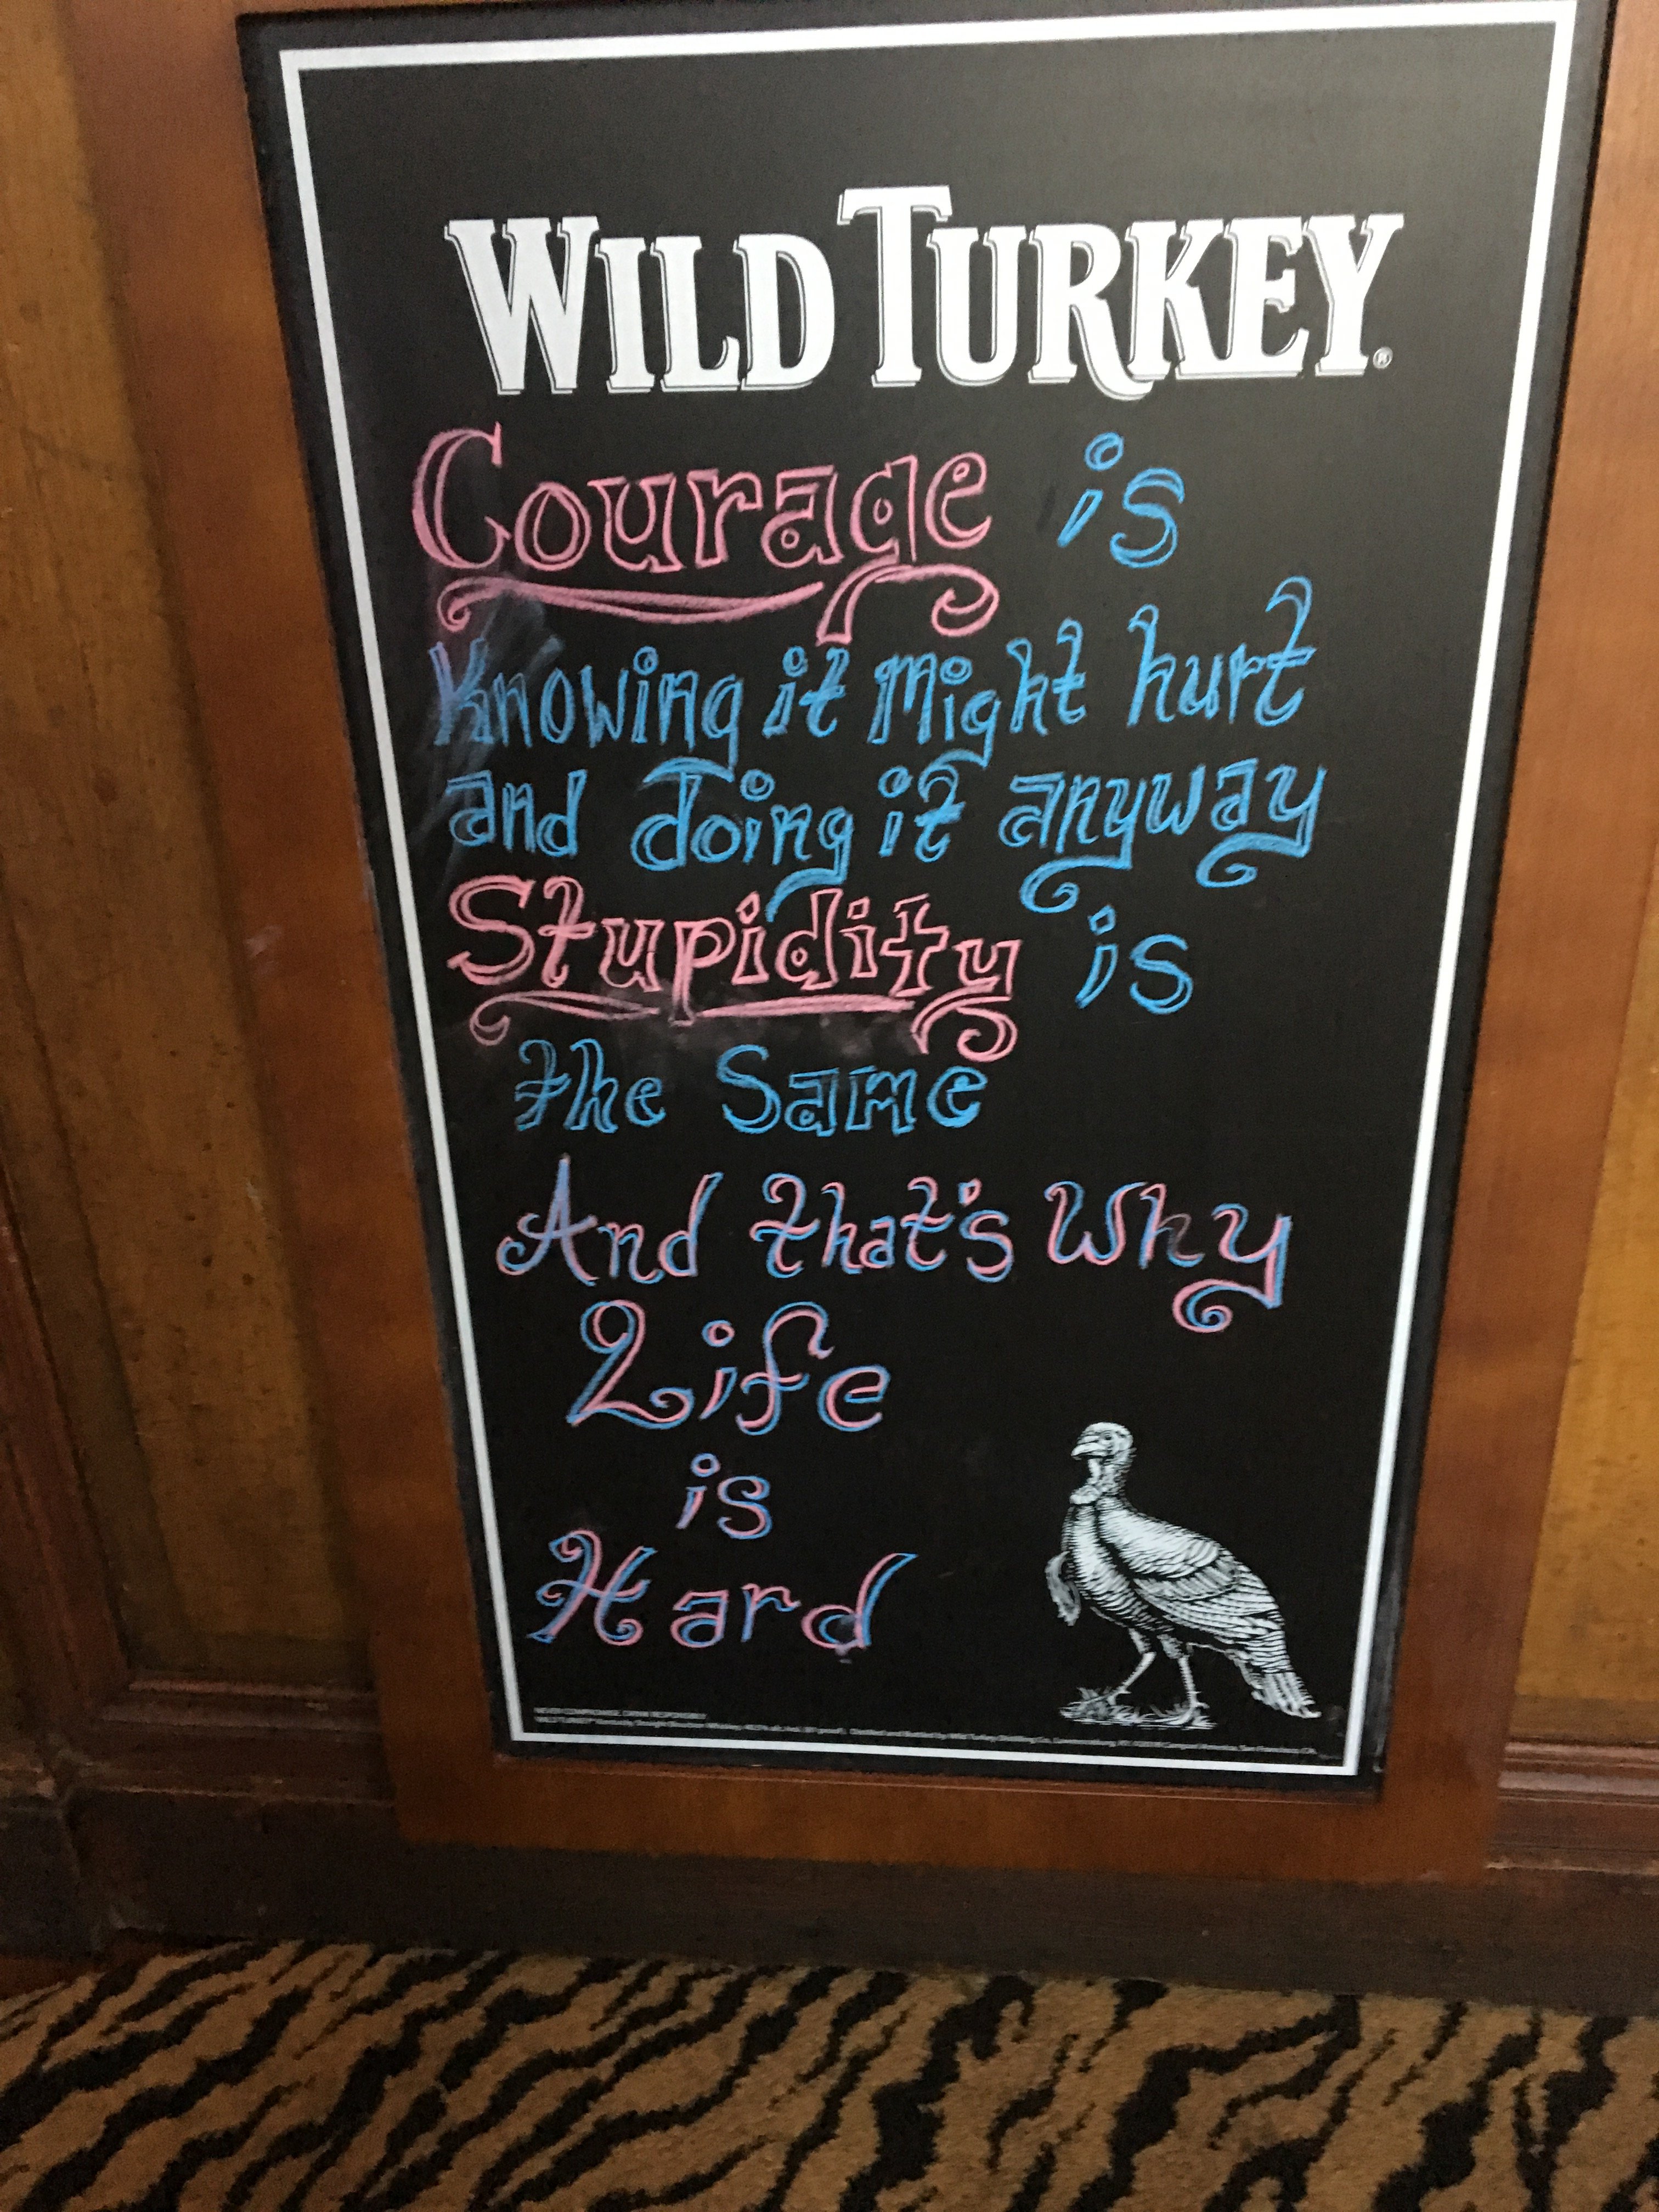 WILD TURKEY®
Courage is
Knowing it Might hurt
and doing it anyway
Stupidity is
the Same
And that's Why
Life
is
Hard